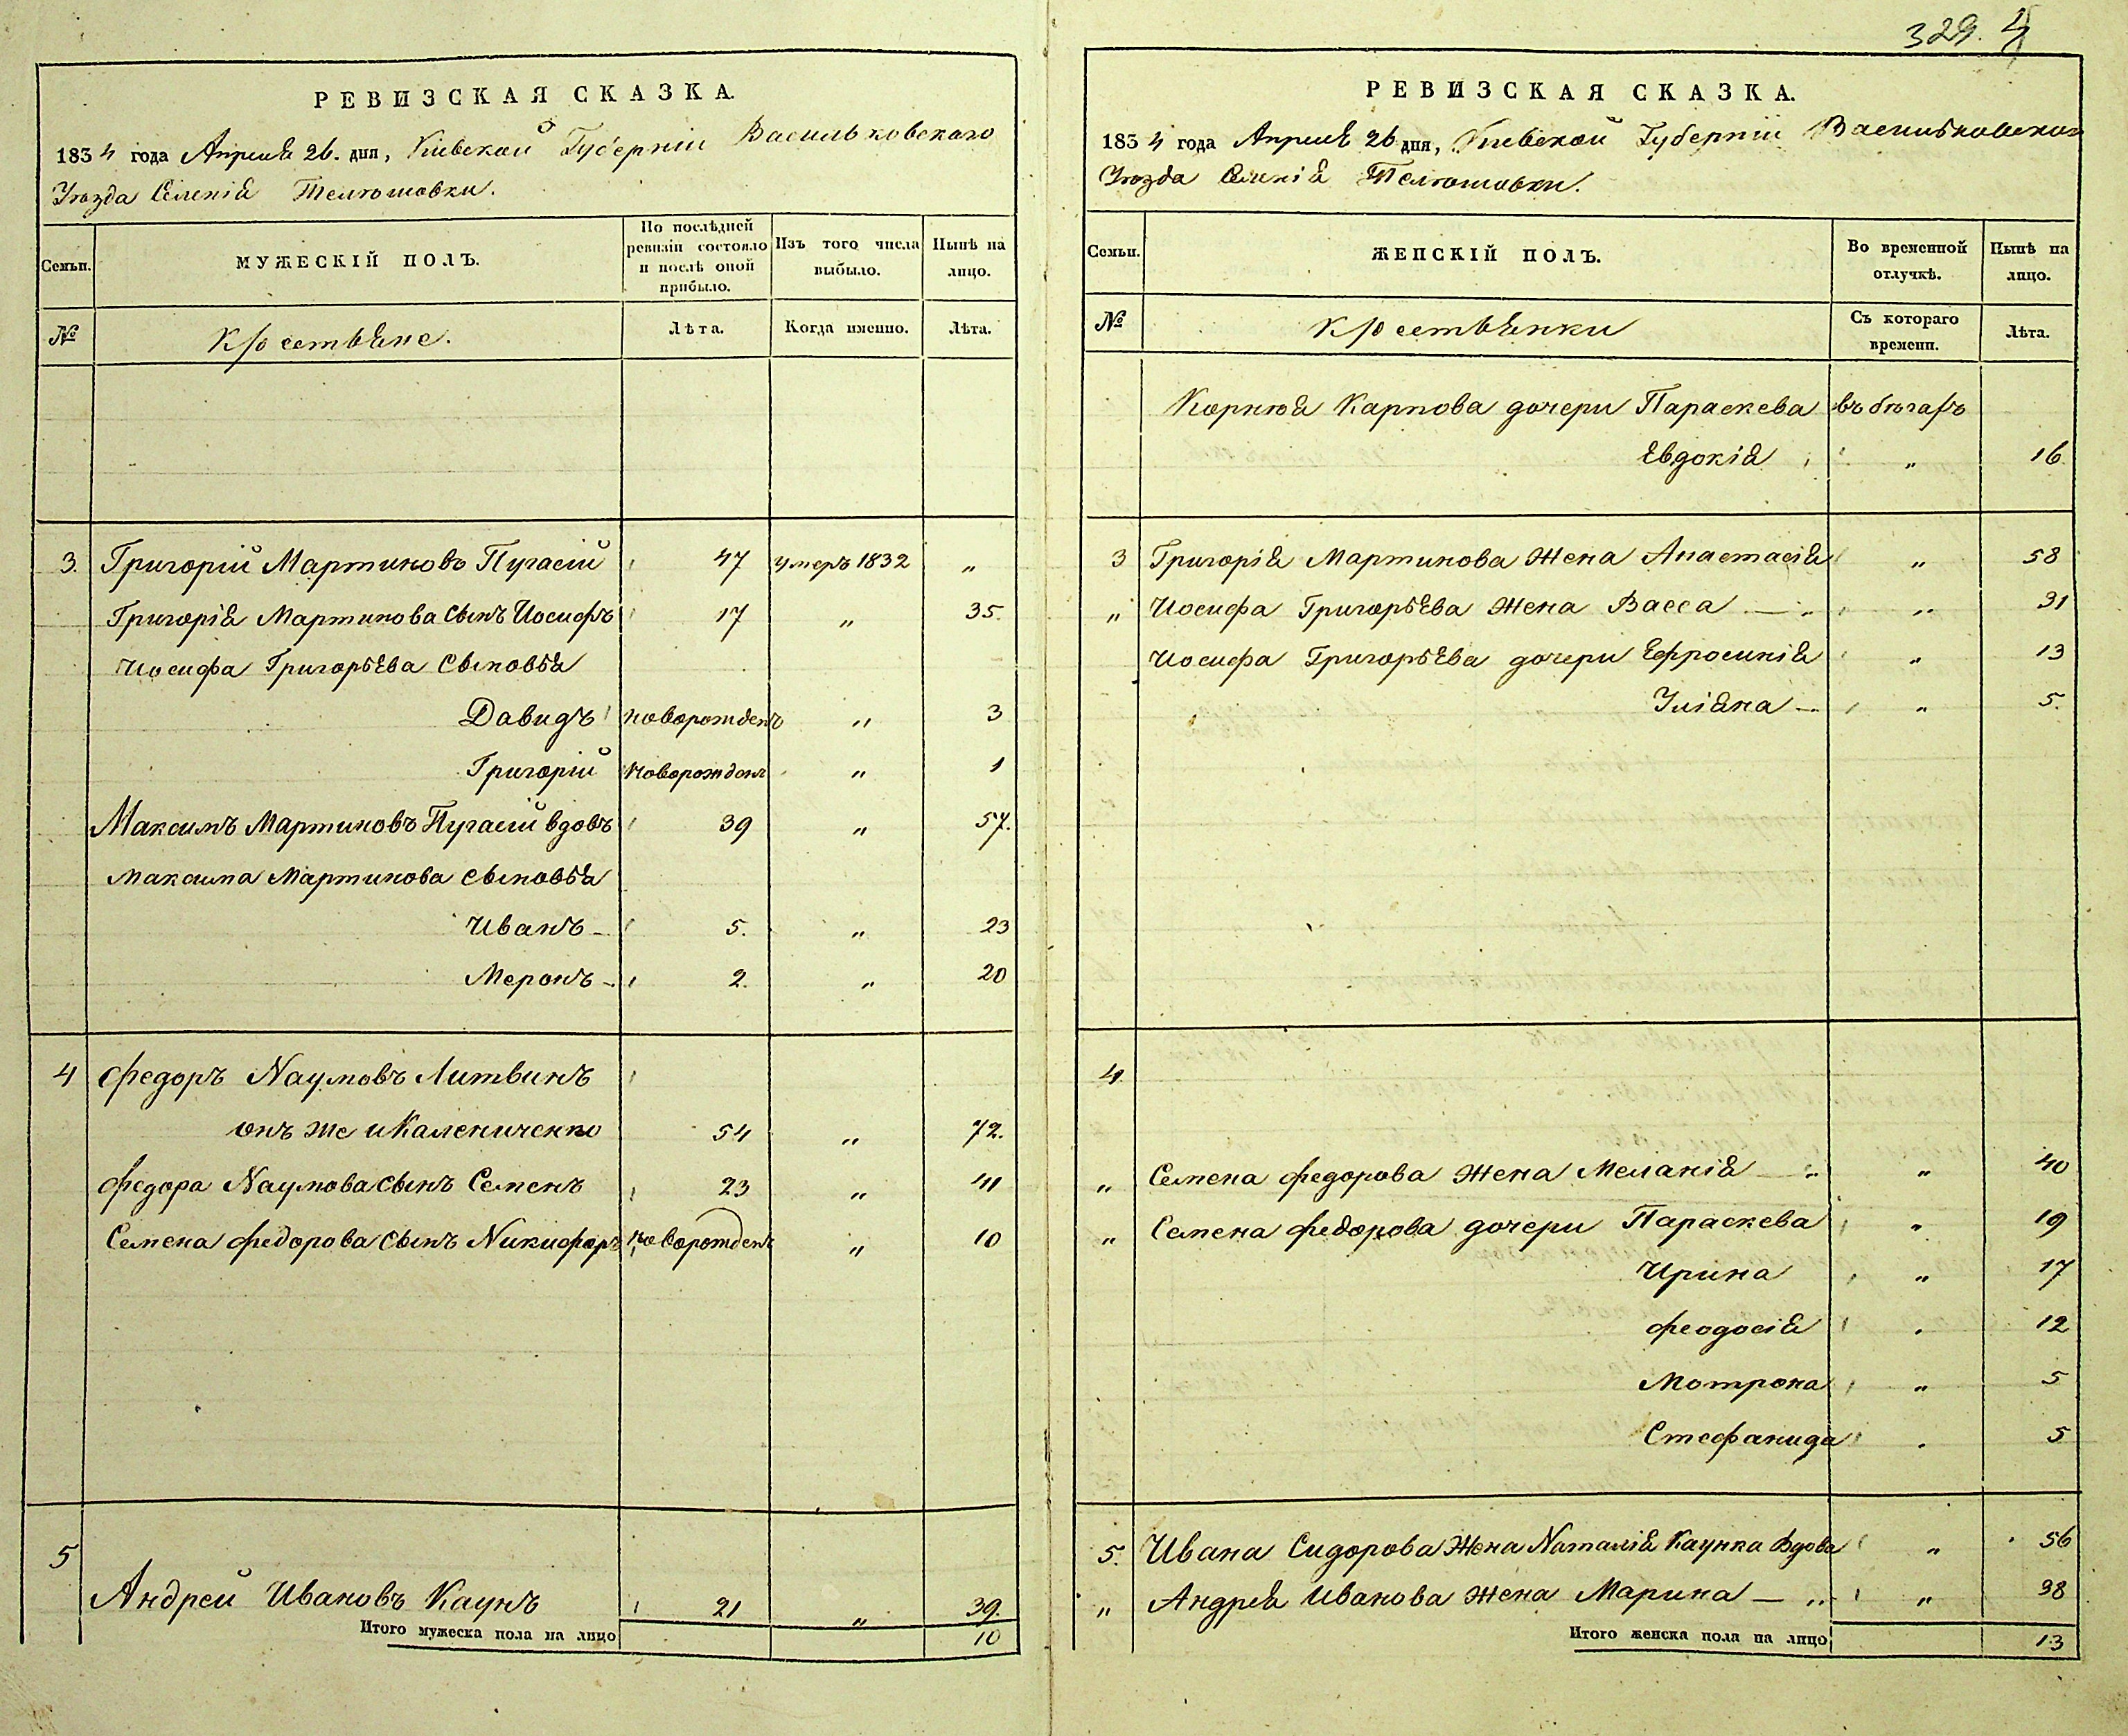 329. 4
РЕВИЗСКАЯ СКАЗКА.
1834 года Апреля 26. дня, Кіевской Губерніи Васильковскаго
Уѣзда Селенія Телюшовки.
Семьи.
МУЖЕСКІЙ ПОЛЪ.
По послѣдней
ревизіи состояло
и послѣ оной
прибыло.
Изъ того числа
выбыло.
Нынѣ на
лицо.
№
Крестьяне.
Лѣта.
Когда именно.
Лѣта.
3. Григорій Мартиновъ Пугасій 47 умеръ 1832 „
Григорія Мартинова сынъ Иосифъ 17 „ 35.
Иосифа Григорьева сыновья
Давидъ новорожденъ „ 3
Григорій новорожден „ 1
Максимъ Мартиновъ Пугасій вдовъ 39 „ 57.
Максима Мартинова сыновья
Иванъ – 5. „ 23
Меронъ – 2. „ 20
4 Федоръ Наумовъ Литвинъ
онъ же и Калениченко 54 „ 72.
Федора Наумова сынъ Семенъ 23 „ 41
Семена Федорова сынъ Никифоръ новорожденъ „ 10
5
Андрей Ивановъ Каунъ 21 „ 39.
Итого мужеска пола на лицо 10
РЕВИЗСКАЯ СКАЗКА.
1834 года Апреля 26 дня, Кіевской Губерніи Васильковскаго
Уѣзда Селенія Телюшовки.
Семьи.
ЖЕНСКІЙ ПОЛЪ.
Во временной
отлучкѣ.
Нынѣ на
лицо.
№
Крестьянки
Съ котораго
времени.
Лѣта.
Корнѣя Карпова дочери Параскева въ бѣгахъ
Евдокія „ 16
3 Григорія Мартинова жена Анастасія „ 58
„ Иосифа Григорьева жена Васса — „ „ 31
Иосифа Григорьева дочери Ефросинія „ 13
Уліяна – „ 5.
4.
„ Семена Федорова жена Меланія — „ „ 40
„ Семена Федорова дочери Параскева „ 19
Ирина „ 17
Феодосія „ 12
Мотрона „ 5
Стефанида „ 5
5. Ивана Сидорова жена Наталія Каунка вдова „ 56
„ Андрея Иванова жена Марина — „ „ 38
Итого женска пола на лицо 13